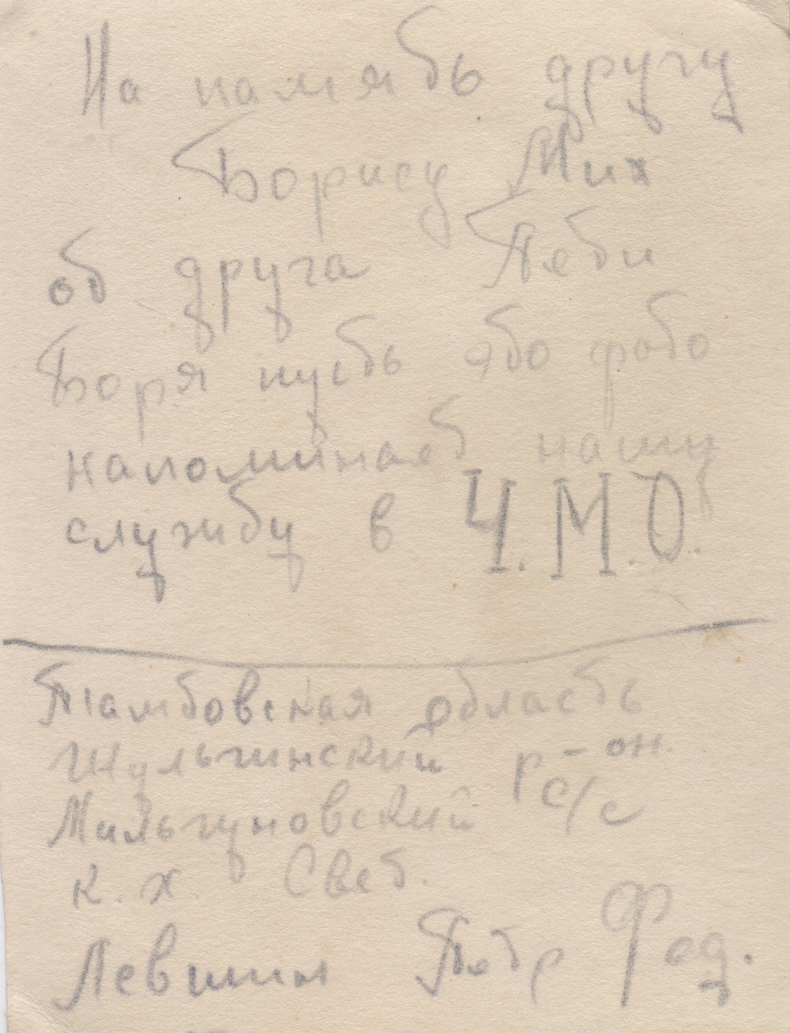 На память другу
Борису Мих
от друга Пети
Боря пусть это фото
напоминает нашу
службу в Ч.М.О.
Тамбовская область
Шульгинский р-он.
Мильгуновский с/с
к.х. Свет.
Левшин Петр Фед.